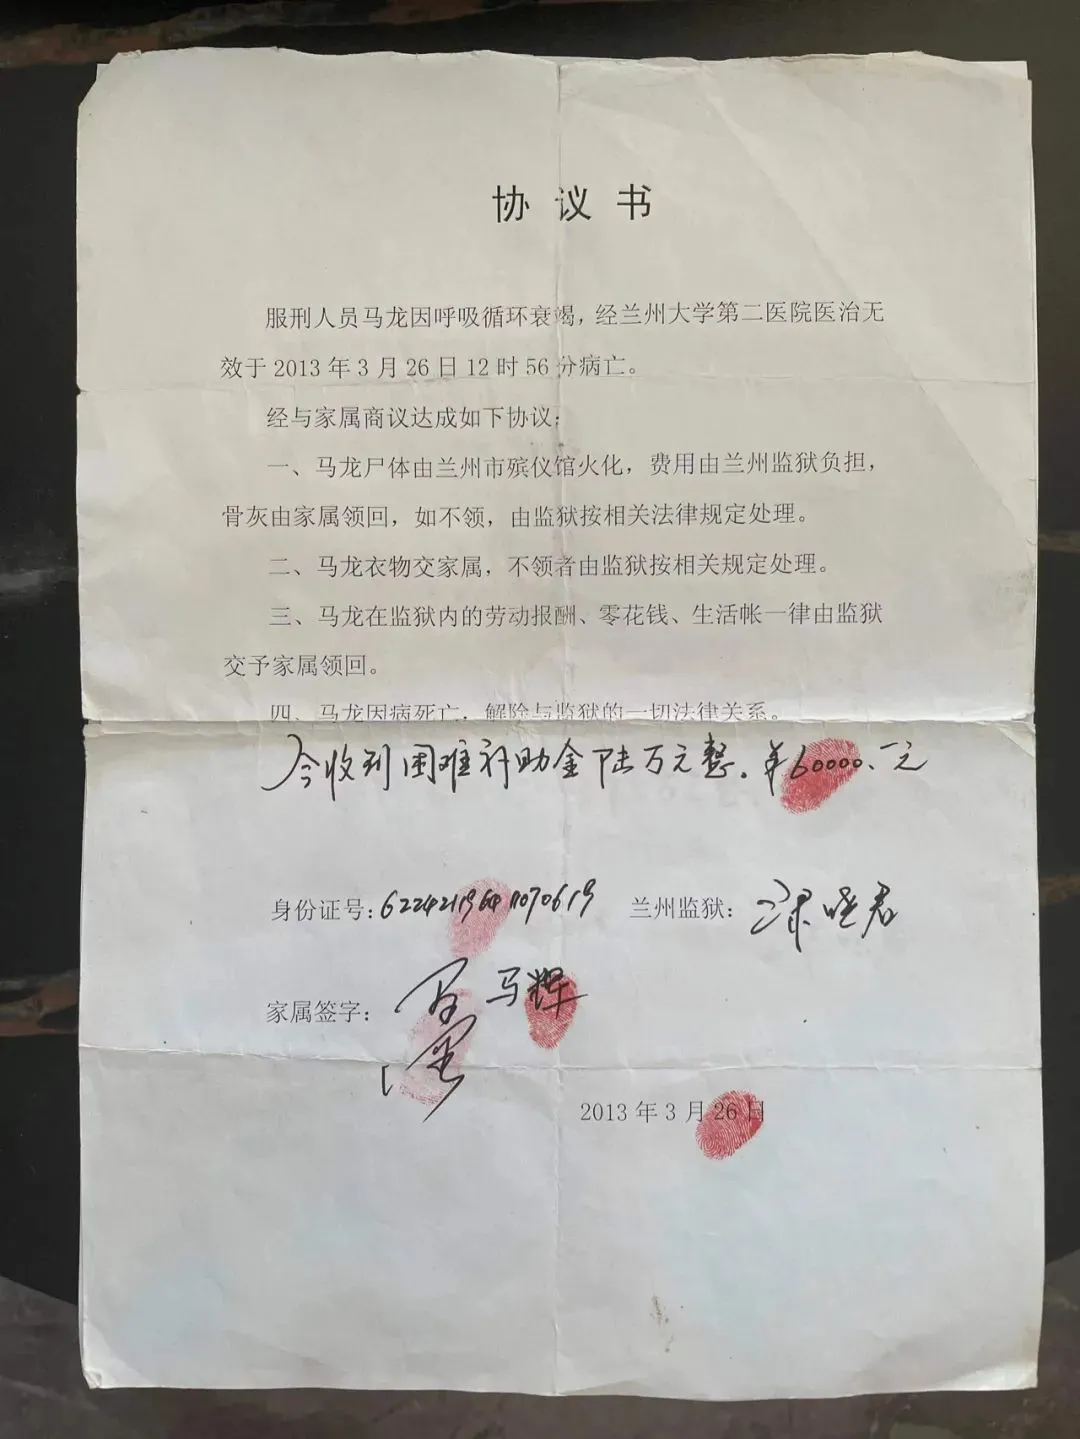 协议书
服刑人员马龙因呼吸循环衰竭，经兰州大学第二医院医治无
效于2013年3月26日12时56分病亡。
经与家属商议达成如下协议：
一、马龙尸体由兰州市殡仪馆火化，费用由兰州监狱负担，
骨灰由家属领回，如不领，由监狱按相关法律规定处理。
二、马龙衣物交家属，不领者由监狱按相关规定处理。
三、马龙在监狱内的劳动报酬、零花钱、生活帐一律由监狱
交予家属领回。
四、马龙因病死亡，解除与监狱的一切法律关系。
今收到困难补助金陆万元整。￥60000.一元
身份证号：　兰州监狱：
家属签字：　马辉
2013年3月26日